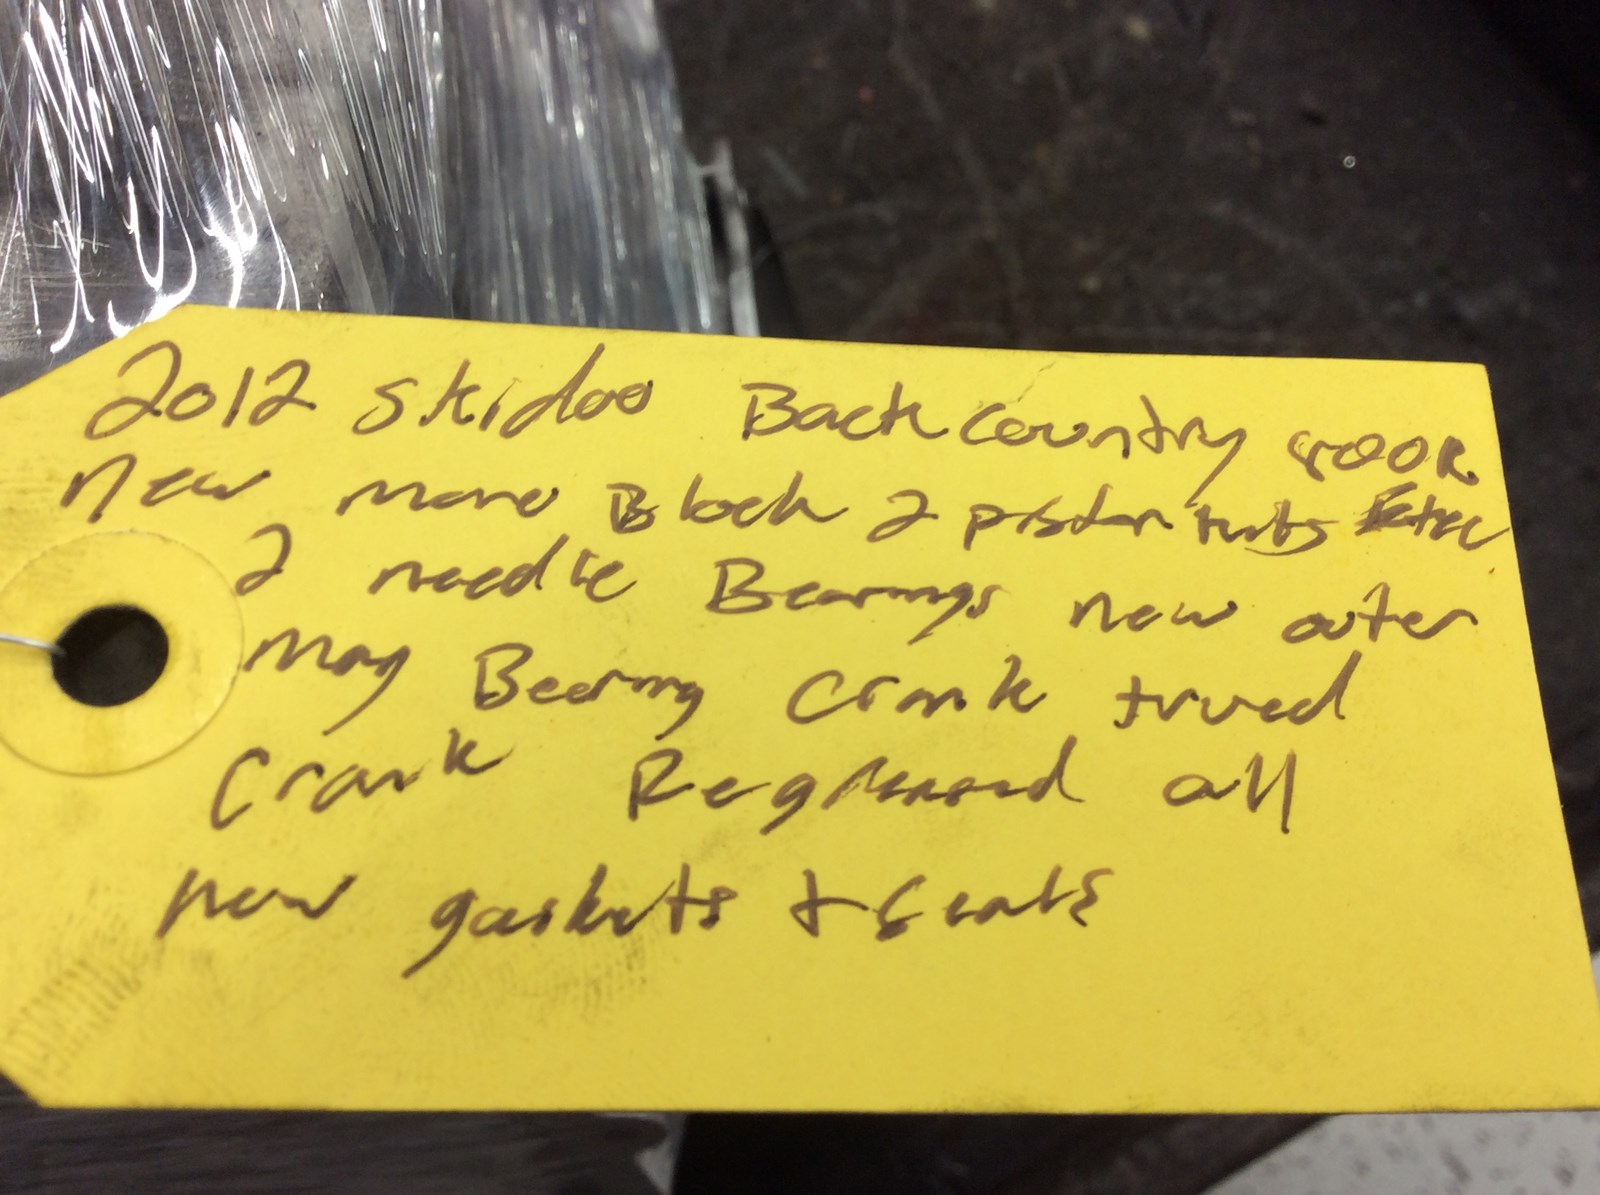 2012 Skidoo Backcountry 800R
New mono Block 2 piston
2 needle Bearings new outer
mag Bearing Crank trued
Crank Regreased all
new gaskets + Seals